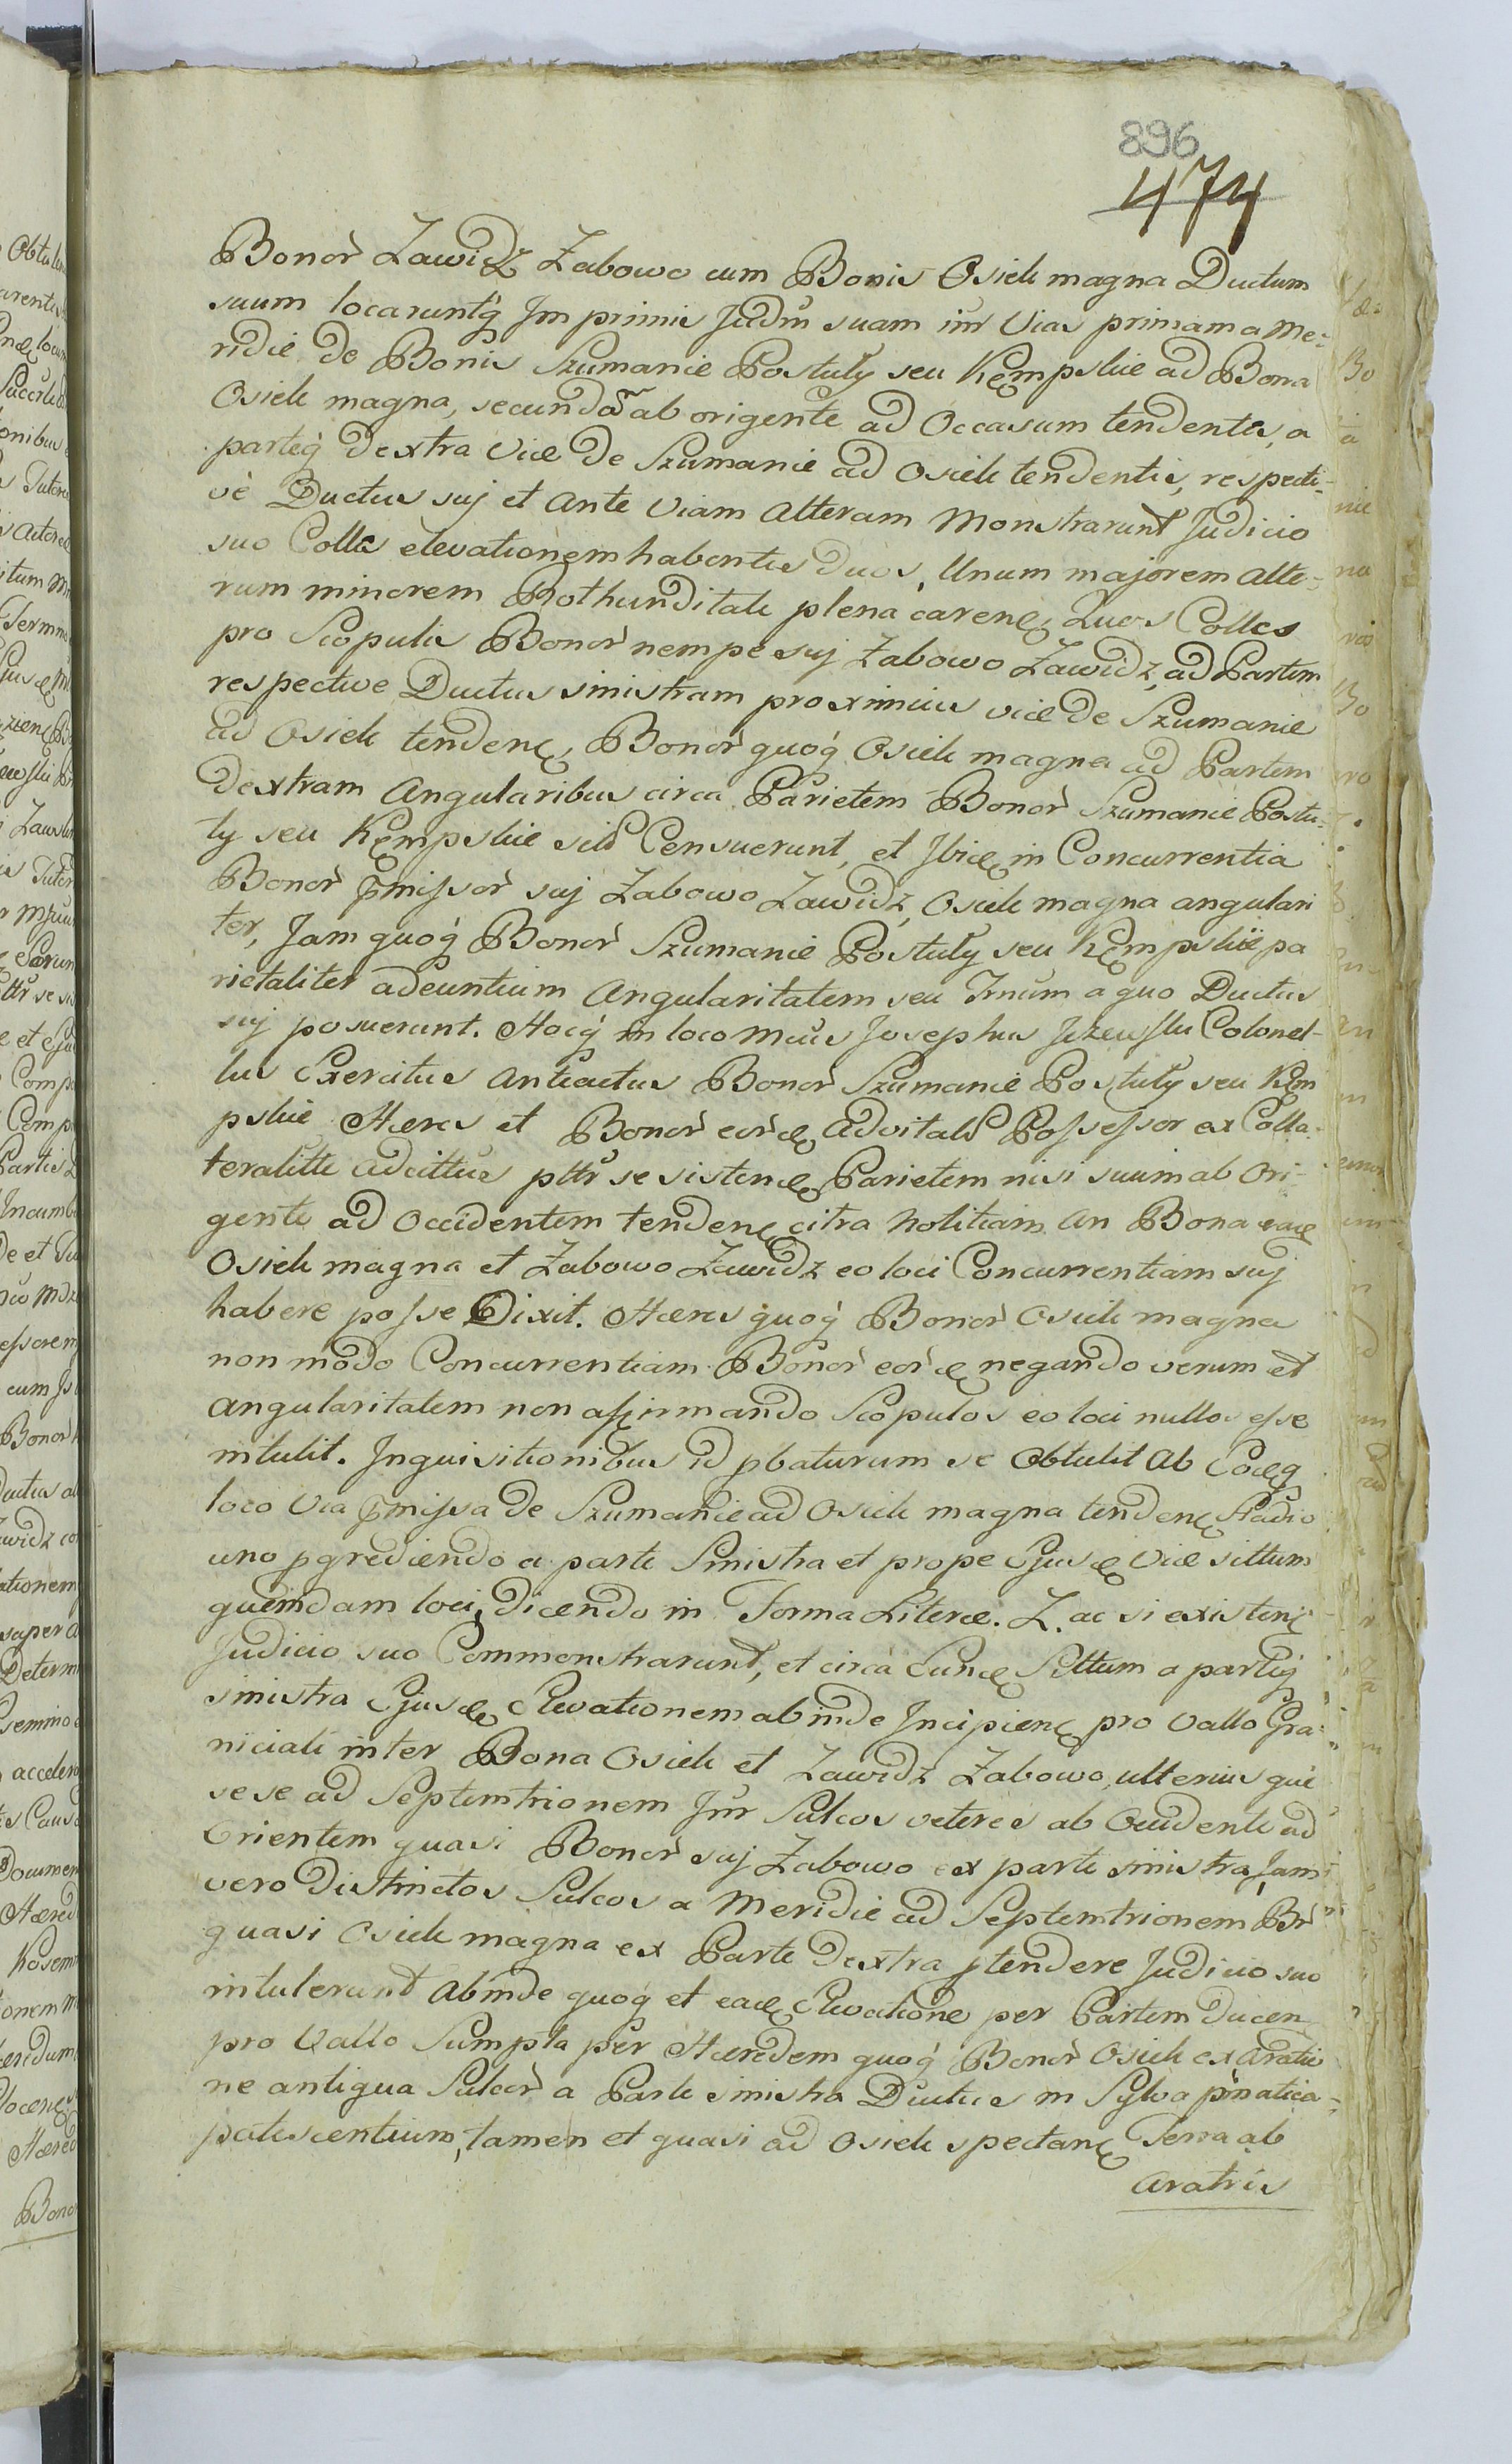 896
474
Bonor̀ Zawidz Żabowo cum Bonis Osiek magna Ductum
suum locaruntq́ Im primis Judm̃ suam inr̃ Vias primam a Me=
ridie de Bonis Szumanie Postuły seu Kęmpskie ad Bona
Osiek magna, secundãr ab origente ad Occasum tendentes, a
parteq́ dextra Viæ de Szumanie ad Osiek tendentis, respecti=
vè Ductus suj et Ante Viam Alteram Monstrarunt Judicio
suo Colles elevationem habentes duos, Unum majorem Alte=
rum minorem Rothunditate plena carenę, Quos Colles
pro Scopulis Bonor̀ nempe suj Żabowo Zawidz, ad Partem
respective Ductus sinistram proximius viæ de Szumanie
ad Osiek tendenę, Bonor̀ quoq́ Osiek magna ad Partem
dextram Angularibus circa Parietem Bonor̀ Szumanie Postu=
ły seu Kęmpskie sibi Censuerunt, et Ibidę in Concurrentia
Bonor̀ p̃missor̀ suj Żabowo Zawidz, Osiek magna angulari
ter, Jam quoq́ Bonor̀ Szumanie Postuły seu Kęmpskie pa
rietaliter adeuntium Angularitatem seu Trnum a quo Ductus
suj posuerunt. Hocq́ in loco Mcus Josephus Jeżewski Colonel=
lus Exercitus Anteactus Bonor̀ Szumanie Postuły seu Kęm
pskie Hæres et Bonor̀ eor̀dę Advitalis Possessor ex Colla=
teralitte adcittus pttr̃ se sistendę Parietem nisi suum ab Ori=
gente ad Occidentem tendenę citra Notitiam An Bona eadę
Osiek magna et Żabowo Zawidz eo loci Concurrentiam suj
habere posse Dixit. Hæres quoq́ Bonor̀ Osiek magna
non modo Concurrentiam Bonor̀ eor̀dę negando verum et
Angularitatem non affirmando Scopulos eo loci nullos esse
intulit. Inquisitionibus id pbaturum se Obtulit Ab Eodęq
loco Via p̃missa de Szumanie ad Osiek magna tendenę Stadio
uno pgrediendo a parte Sinistra et prope Ejusdę Viæ sittum
quemdam loci, dicendo in Forma Literæ. Z. ac si existenę
Judicio suo Commonstrarunt, et circa Eundę Sittum a parteq́
sinistra Ejusdę Elevationem abinde Incipienę pro Vallo Gra=
niciali inter Bona Osiek et Zawidz Żabowo, ulterius què
sese ad Septemtrionem Inr̃ Sulcos veteres ab Occidente ad
Orientem quasi Bonor̀ suj Żabowo ex parte sinistra, Jam
vero Distinctos Sulcos a Meridie ad Septemtrionem Br̃
quasi Osiek magna ex Parte dextra ptendere Judicio suo
intulerunt Abinde quoq́ et eadę Elevatione per Partem Ducen
pro Vallo Sumpta per Hæredem quoq́ Bonor̀ Osiek ex Aratio
ne antiqua Sulcor̀ a Parte sinistra Ductus in Sylva pinatica
patescentium, tamen et quasi ad Osiek spectanę Terra ab
Aratris